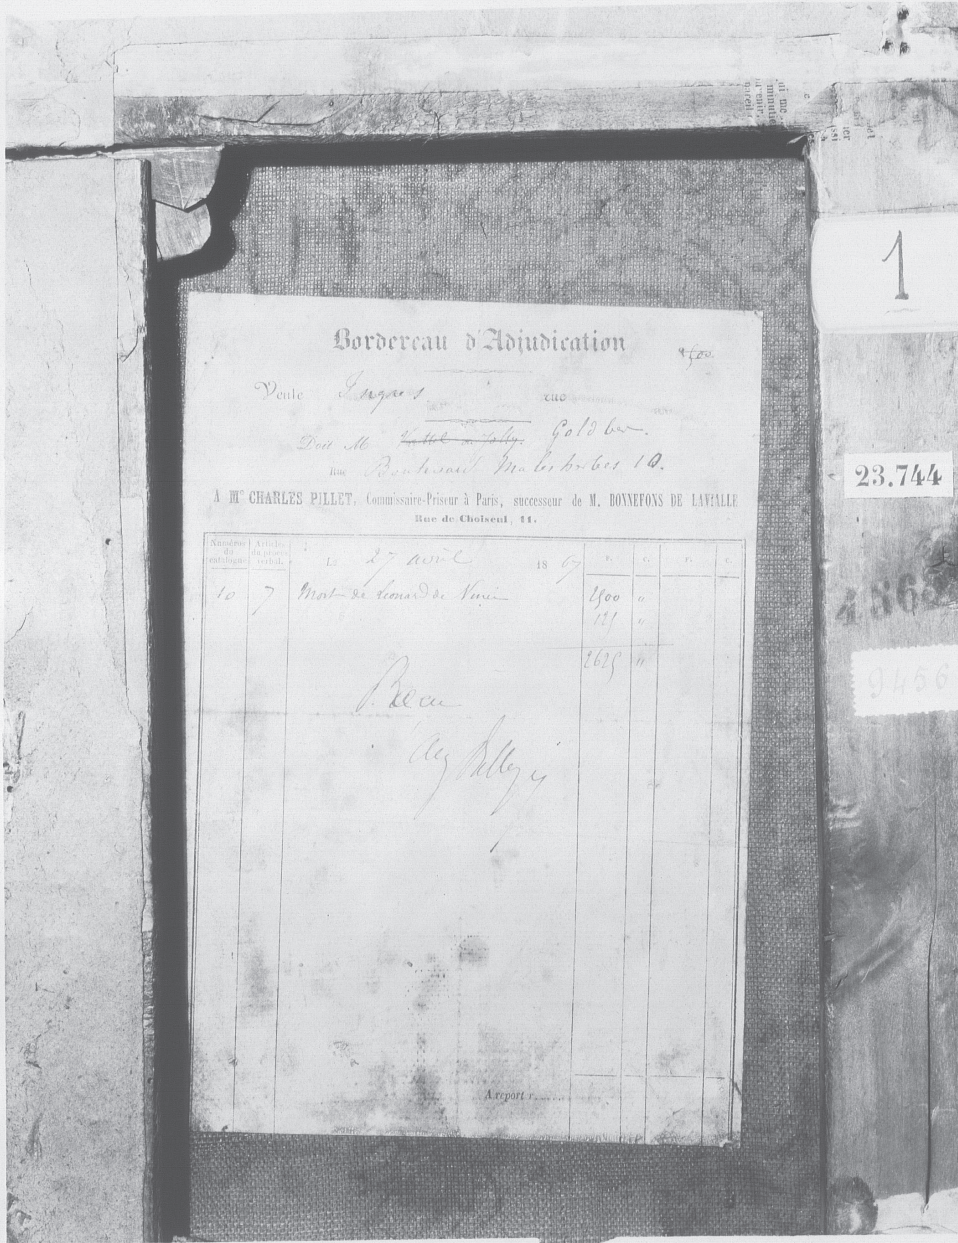 1
Bordereau d'Adjudication
Vente Ingres rue
Doit M
Rue Boulevard Malesherbes 10.
A Me CHARLES PILLET, Commissaire-Priseur à Paris, successeur de M. BONNEFONS DE LAVIALLE
Rue de Choiseul, 11.
23.744
Numéros du catalogue
Articles du procès verbal.
Le 27 avril 1867
F. C. F. C.
10 7 Mort de Léonard de Vinci 2500 "
125 "
2625 "
9456
A report r......